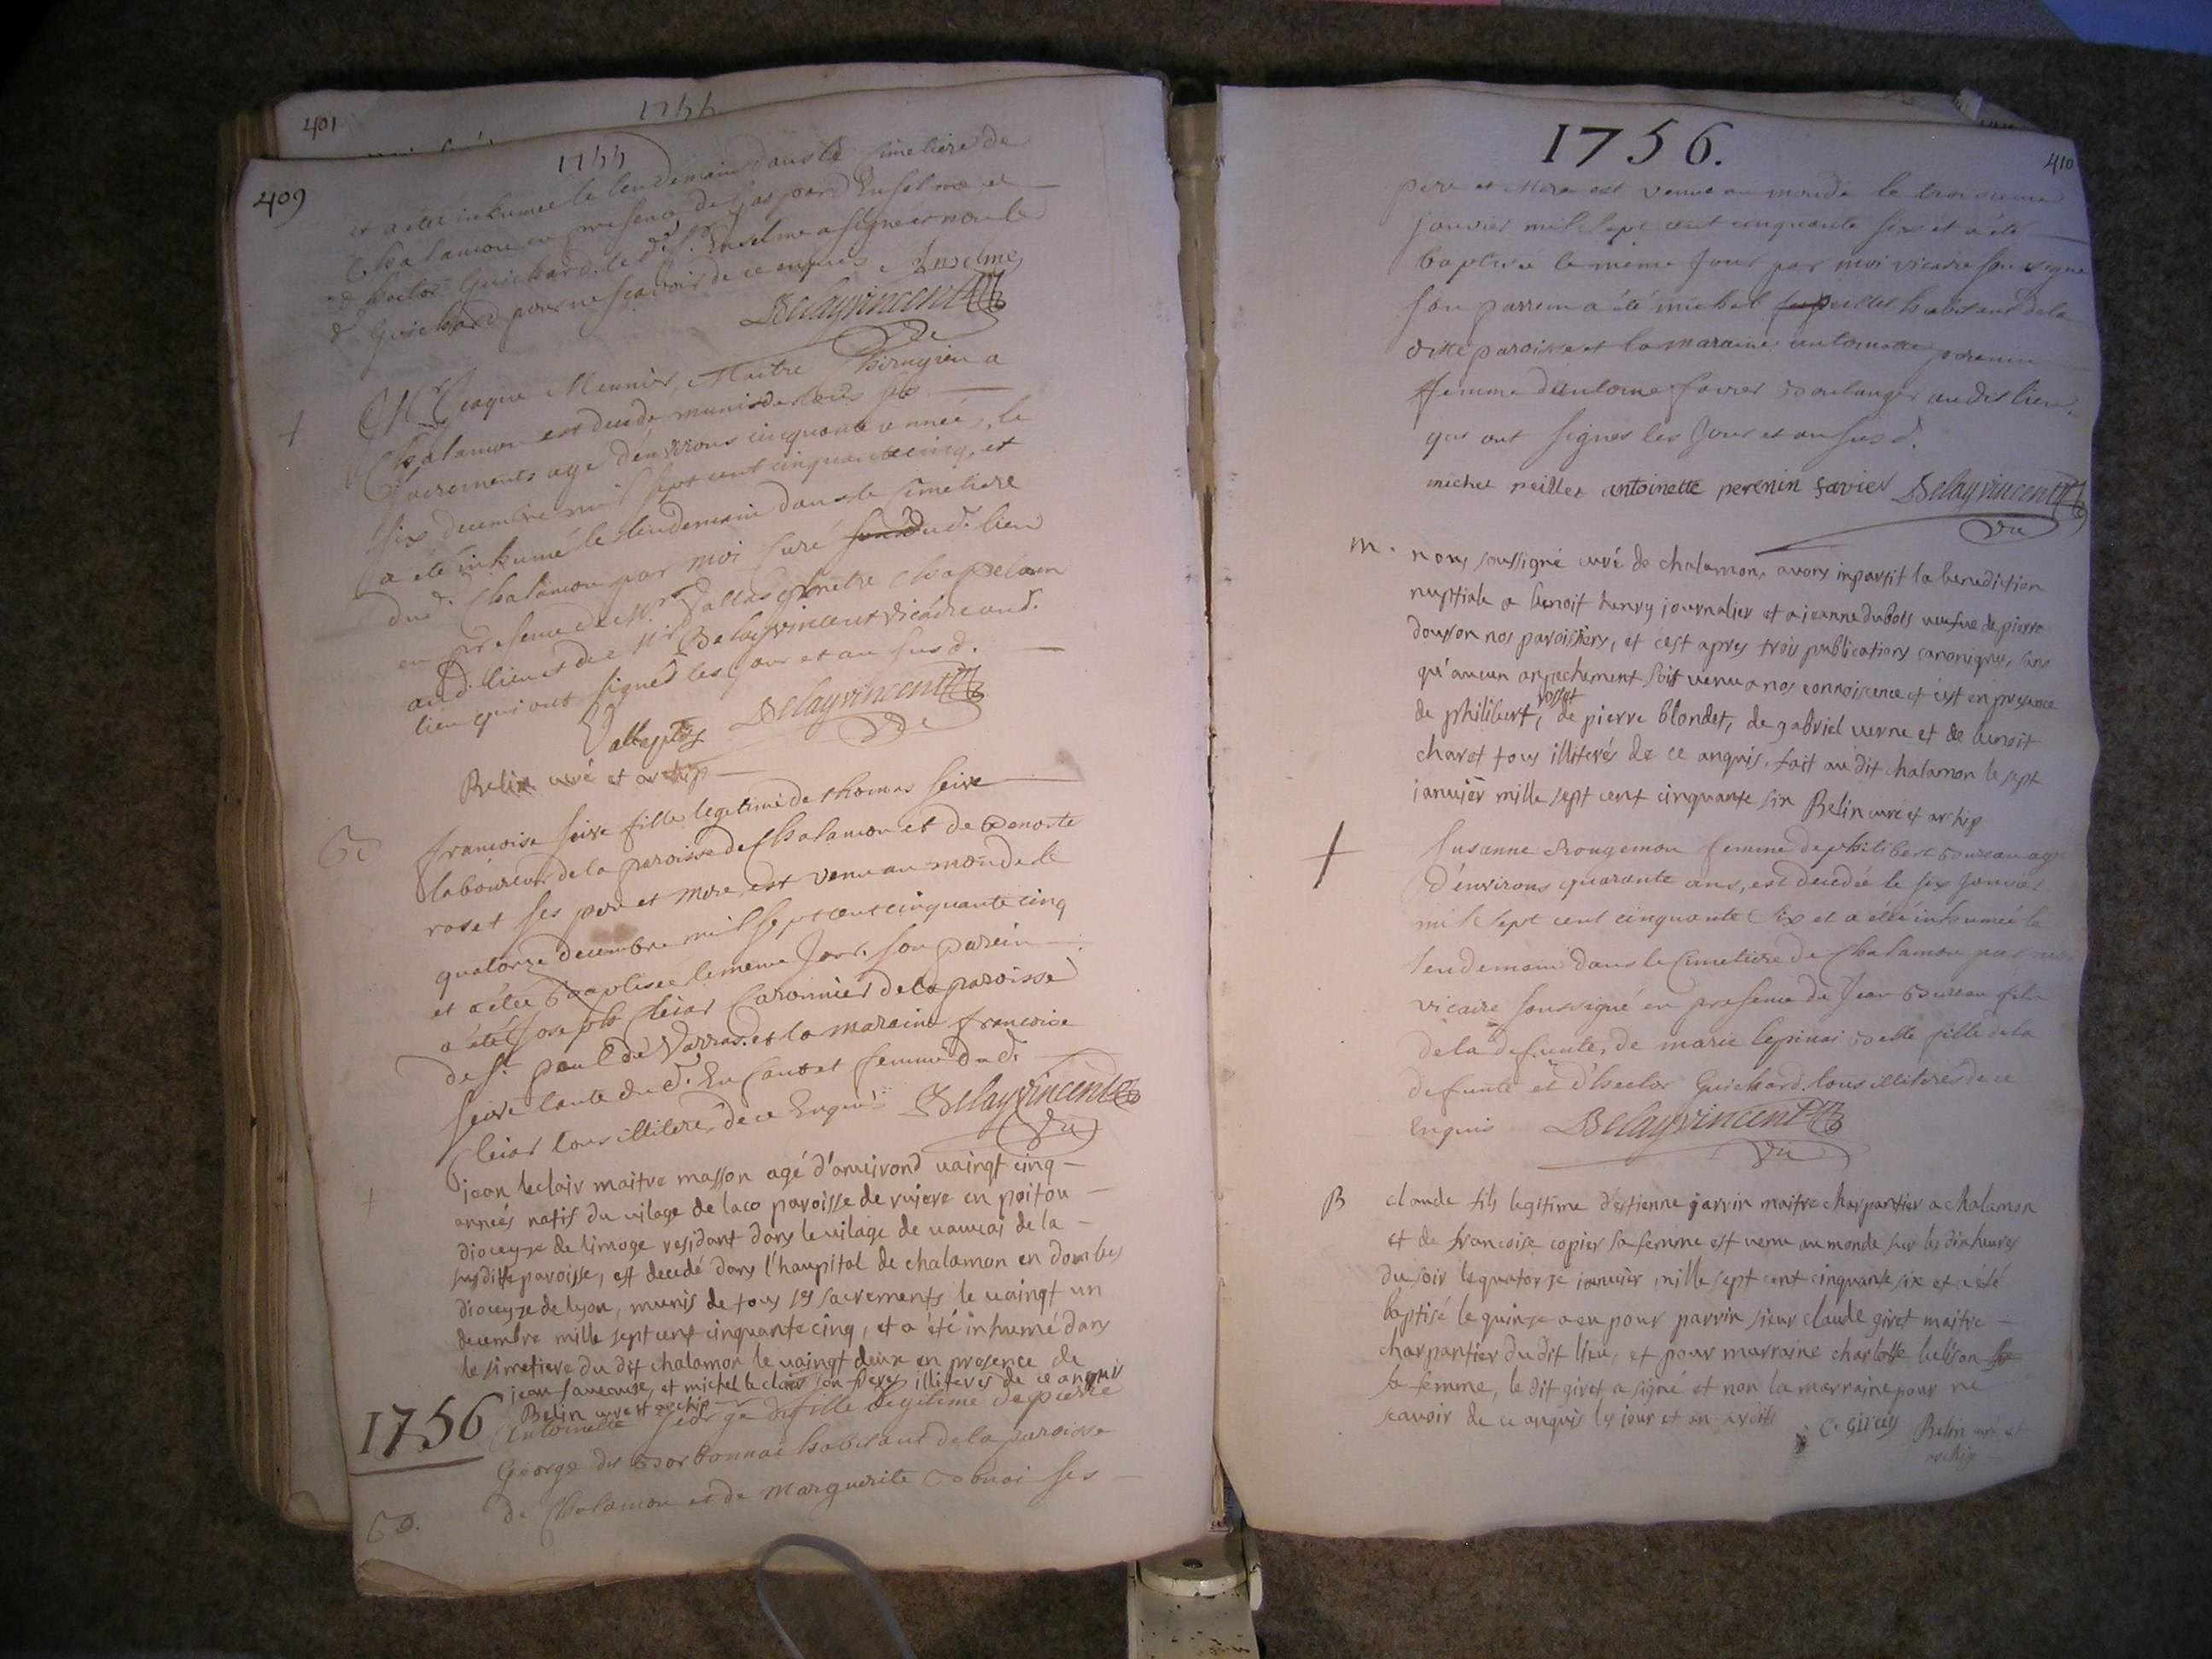 401
1755
409
1755
et a été inhumee le lendemain dans le simetiere de
Chalamon en presence de Gaspard Enselme et
d'hector Guichard. le d. Sr. Enselme a signé et non le
d. Guichard pour ne scavoir de ce enquis Anselme
Delayvincent
Vic
+
Mr. Jaque Meunier, Maitre Chirugien a
Chalamon est decedé munis de tous ses
Sacrements agé d'environs cinquante années, le
six decembre mil sept cent cinquante cinq, et
a été inhumé le lendemain dans le simetiere
dud. Chalamon par moi curé dud. lieu
en presence de Mr. Vallas prêtre chapelain
aud. lieu et de Mr. Delayvincent vicaire aud.
lieu qui ont signés les jour et an susd.
Delayvincent
Vic
Belin curé et archip
B
francoise seive fille legitime de thomas seive
laboureur de la paroisse de Chalamon et de Benoite
roset ses pere et mere, est venu au monde le
quatorze decembre mil sept cent cinquante cinq
et a étée Baptisée le meme Jour. son parein
a été Joseph Cleiat Caronnier de la paroisse
de St. paul de Varras. et la maraine francoise
seive tante du d. Enfant et femme du d.
Cleiat tous illiteré de ce Enquis Delayvincent
Vic
+
jean leclair maitre masson agé d'anvirond vaingt cinq
années natif du vilage de laco paroisse de rviere en poitou
dioceyze de limoge residant dans le vilage de vauvai de la
susditte paroisse, est decedé dans l'haupital de chalamon en dombes
dioceyze de lyon, munis de tous ses sacrements le vaingt un
decembre mille sept cent cinquante cinq, et a été inhumé dans
le simetiere du dit chalamon le vaingt deux en presence de
jean et michel leclair son freres illiteres de ce anquis
Belin curé et archip
1756
B.
Antoinette George fille legitime de pierre
George dit Borbonnai habitant de la paroisse
de Chalamon et de Marguerite Bonai ses
1756.
410
pere et Mere est venue au monde le troisieme
janvier mil sept cent cinquante six et a été
baptisé le même jour par moi vicaire soussigne
son parrein a été michel peillet habitant de la
ditte paroisse et la maraine antoinette perenin
femme d'antoine favier Boulanger au dit lieu.
qui ont signés les jour et an susd.
michel peillet antoinette perenin favier Delayvincent
Vic
m.
nous soussigné curé de chalamon, avons inpartit la benediction
nuptiale a benoit henry journalier et a jeanne dubois veufue de pierre
douson nos paroissiens, et cest apres trois publications canoniques, sans
qu'aucun anpechement soit venu a nos connoiscence et c'est en presance
de philibert, rosset de pierre blondet, de gabriel verne et de benoit
charet tous illiterés de ce anquis. fait au dit chalamon le sept
janvier mille sept cent cinquante six Belin curé et archip
+
Susanne Rougemon femme de philibert Bureau agé
d'environs quarante ans, est decedée le six janvier
mil sept cent cinquante six et a étée inhumée le
lendemain dans le Cimetiere de Chalamon par moi
vicaire soussigné en presence de Jean Bureau fils
de la defunte, de marie lepinai Belle fille de la
defunte et d'hector Guichard. tous illiteres de ce
Enquis Delayvincent
Vic
B
claude fils legitime d'estienne jarrin maitre charpantier a chalamon
et de francoise copier sa femme est venu au monde sur les dix heures
du soir le quatorze janvier mille sept cent cinquante six et a été
baptisé le quinze a eu pour parrin sieur claude giret maitre
charpantier du dit lieu, et pour marraine charlotte
sa femme, le dit giret a signé et non la marraine pour ne
scavoir de ce anquis les jour et an
Belin curé et
archip